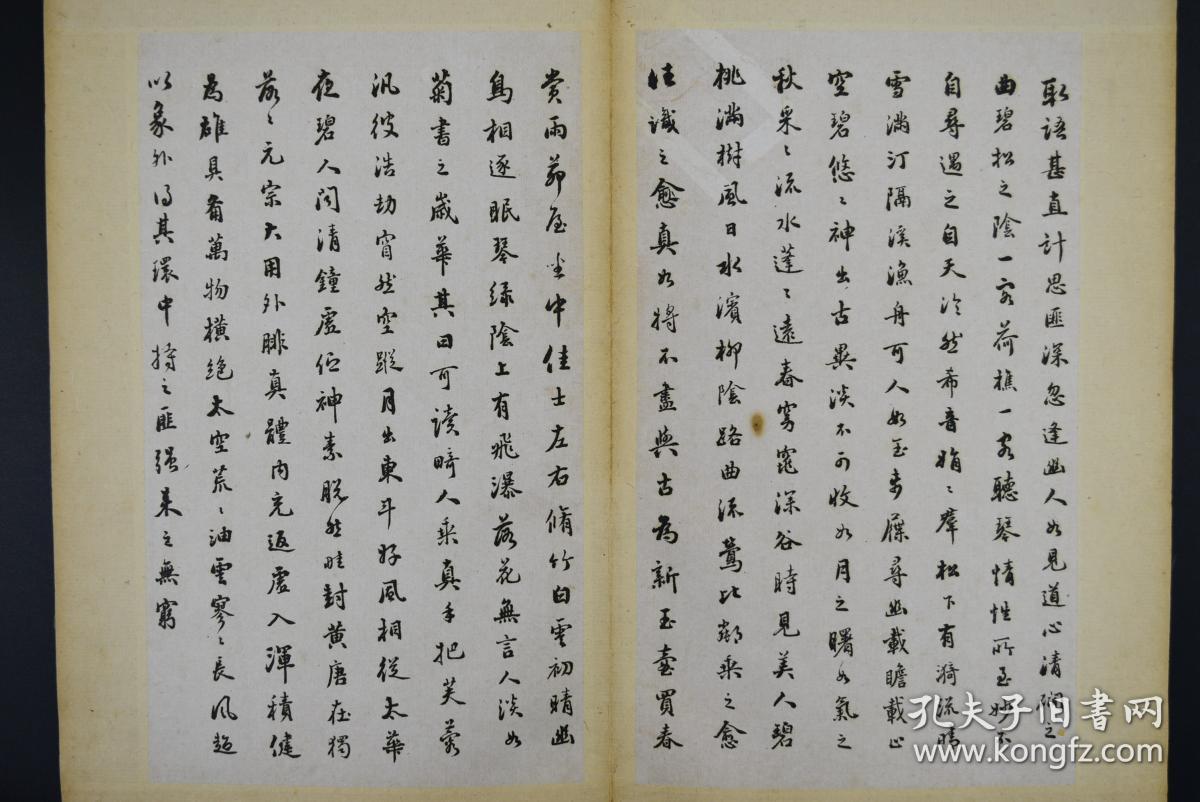 取語甚直計思匪深忽逢幽人如見道心清澗之
曲碧松之陰一客荷樵一客聽琴情性所至妙不
自尋遇之自天泠然希音娟〻群松下有漪流晴
雪滿汀隔溪漁舟可人如玉步屧尋幽載瞻載止
空碧悠〻神出古異淡不可收如月之曙如氣之
秋采〻流水蓬〻遠春窈窕深谷時見美人碧
桃滿樹風日水濱柳陰路曲流鶯比鄰乘之愈
往識之愈真如將不盡與古為新玉壺買春
賞雨茆屋坐中佳士左右脩竹白雲初晴幽
鳥相逐眠琴綠陰上有飛瀑落花無言人淡如
菊書之歲華其曰可讀畸人乘真手把芙蓉
汎彼浩劫窅然空蹤月出東斗好風相從太華
夜碧人聞清鐘虛佇神素脫然畦封黃唐在獨
落〻元宗大用外腓真體內充返虛入渾積健
為雄具備萬物橫絕太空荒〻油雲寥〻長風超
以象外得其環中持之匪強來之無窮
孔夫子旧书网
kongfz.com